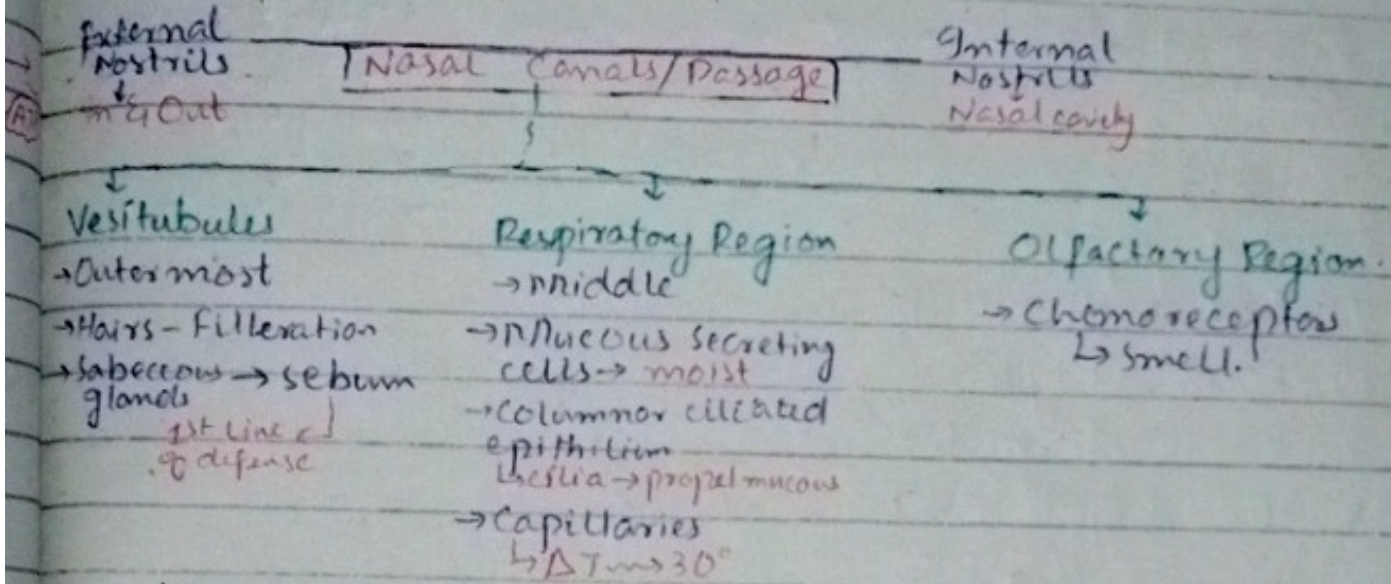 External
Nostrils
in & Out
Nasal Canals/Passage
Internal
Nostrils
Nasal cavity
Vesitubules
→Outermost
→Hairs - Filleration
→Sabeceous → sebum
glands
1st line
of defense
Respiratory Region
→middle
→Mucous secreting
cells→ moist
→Columnor ciliated
epithilium
↳cilia→propel mucous
→Capillaries
↳ΔT → 30°
Olfactory Region.
→ Chemoreceptors
↳ smell.